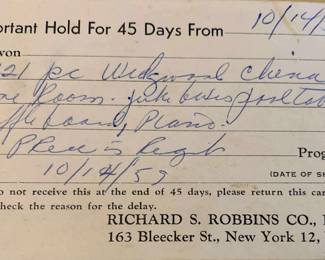 ortant Hold For 45 Days From 10/14/5
won
21 pc Wedgwood China
Room - juke box pool
board, Piano -
Price is Right
Prog
10/14/59
(DATE OF SH
o not receive this at the end of 45 days, please return this car
check the reason for the delay.
RICHARD S. ROBBINS CO., I
163 Bleecker St., New York 12,